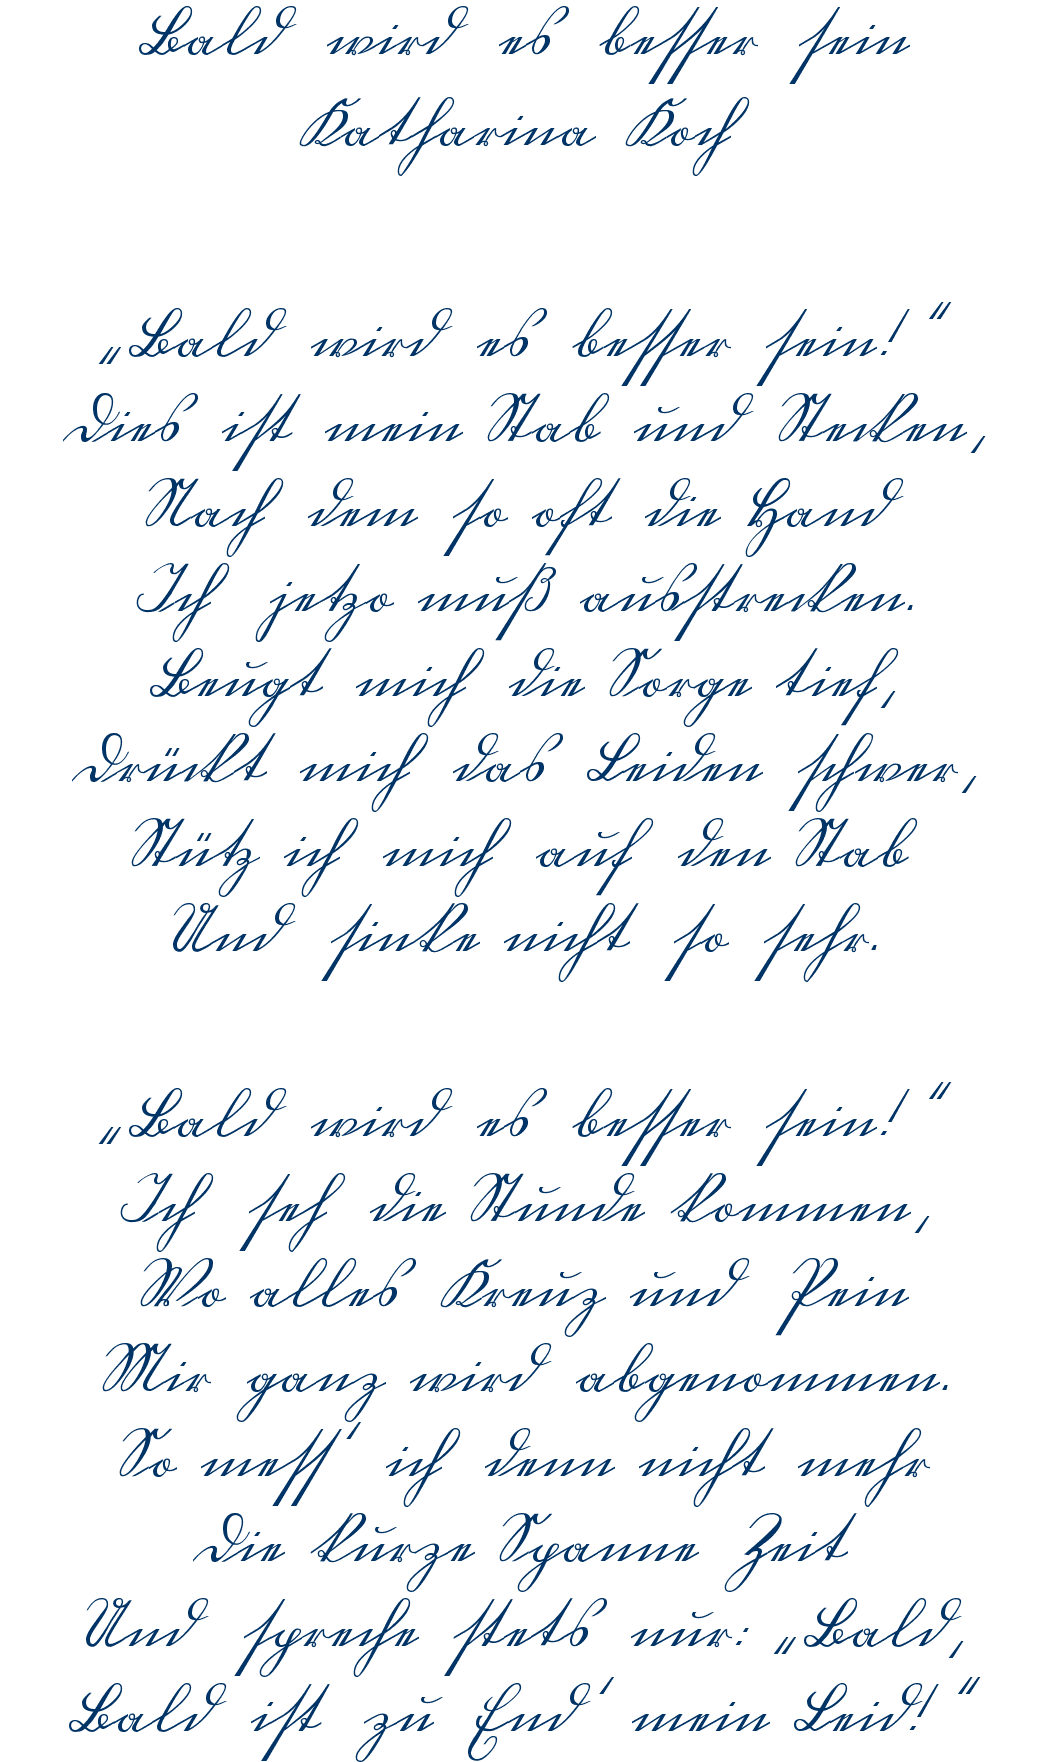 Bald wird es besser sein
Katharina Koch
„Bald wird es besser sein!“
Dies ist mein Stab und Stecken,
Nach dem so oft die Hand
Ich jetzo muß ausstrecken.
Beugt mich die Sorge tief,
Drückt mich das Leiden schwer,
Stütz ich mich auf den Stab
Und sinke nicht so sehr.
„Bald wird es besser sein!“
Ich seh die Stunde kommen,
Wo alles Kreuz und Pein
Mir ganz wird abgenommen.
So mess' ich denn nicht mehr
Die kurze Spanne Zeit
Und spreche stets nur: „Bald,
Bald ist zu End' mein Leid!“